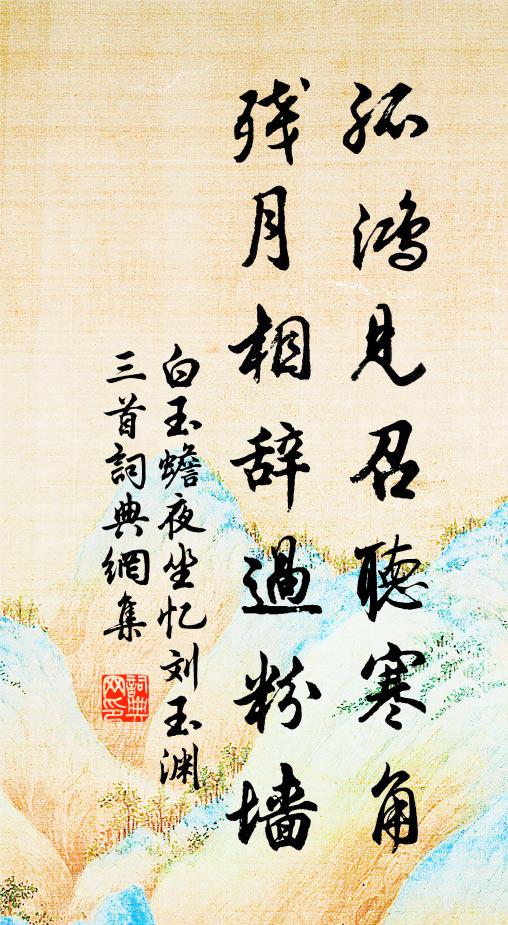 孤鸿见召聽寒角
残月相辞過粉墙
白玉蟾夜坐忆刘玉渊
三首詞典網集
詞典
网印